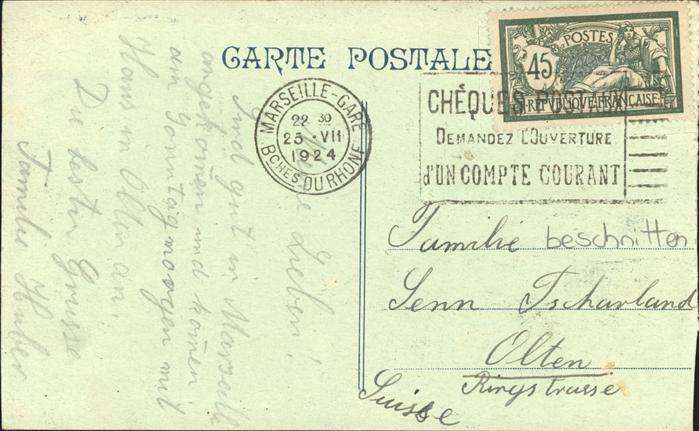 CARTE POSTALE
POSTES
45
RÉPUBLIQUE FRANÇAISE
MARSEILLE-GARE
22 30
25 · VII
1924
BCHES DU RHONE
CHÈQUES POSTAUX
DEMANDEZ L'OUVERTURE
d'UN COMPTE COURANT
Lieben!
Sind gut in Marseille
angekomen und komen
am Sonntag morgen mit
Haus in Olten an
Die besten Grüsse
Familie Huber
Familie beschnitten
Senn Tscharland
Olten
Ringstrasse
Suisse